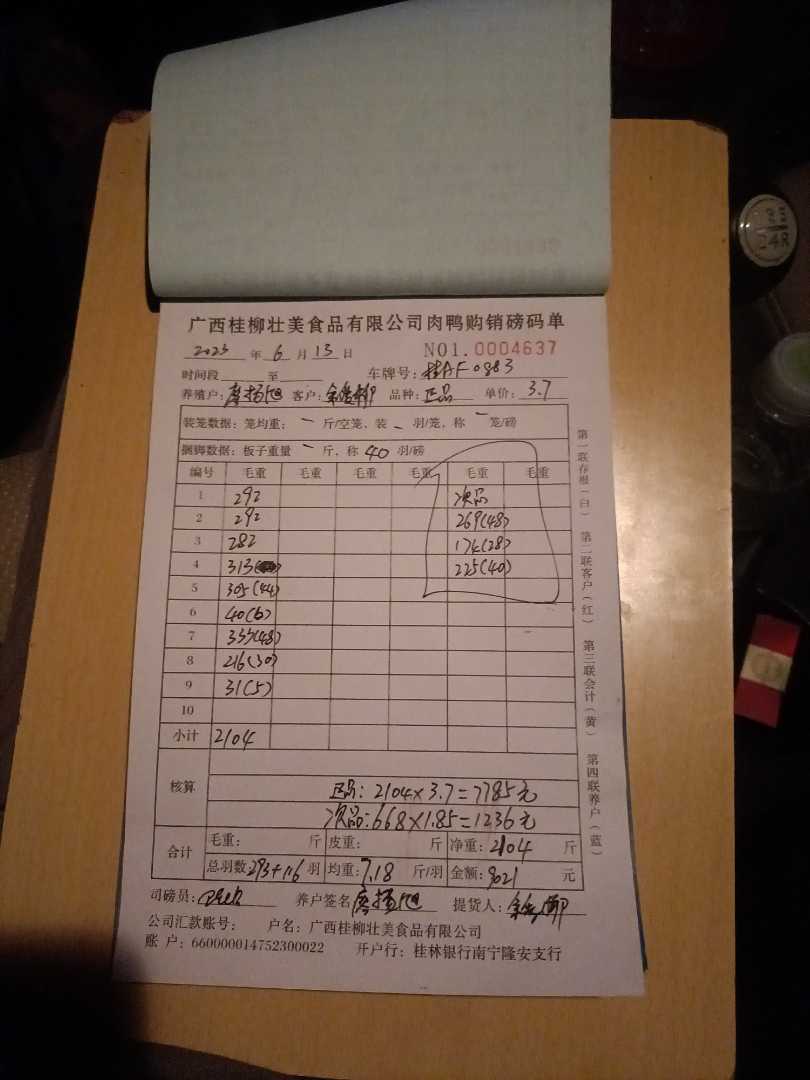 广西桂柳壮美食品有限公司肉鸭购销磅码单
2023 年 6 月 13 日 NO1.0004637
时间段 至 车牌号: 桂AF0883
养殖户: 客户: 品种: 正品 单价: 3.7
装笼数据: 笼均重: 一 斤/空笼, 装 一 羽/笼, 称 一 笼/磅
捆脚数据: 板子重量 一 斤, 称 40 羽/磅
编号 毛重 毛重 毛重 毛重 毛重 毛重
1 292 次品
2 292 269(48)
3 282 174(28)
4 313 225(40)
5 305(44)
6 40(6)
7 333(48)
8 216(30)
9 31(5)
10
小计 2104
核算
正品: 2104×3.7=7785元
次品: 668×1.85=1236元
合计 毛重: 斤 皮重: 斤 净重: 2104 斤
总羽数 293+116 羽 均重: 7.18 斤/羽 金额: 9021 元
司磅员: 养户签名 提货人:
公司汇款账号: 户名: 广西桂柳壮美食品有限公司
账 户: 660000014752300022 开户行: 桂林银行南宁隆安支行
第一联存根(白) 第二联客户(红) 第三联会计(黄) 第四联养户(蓝)
24R